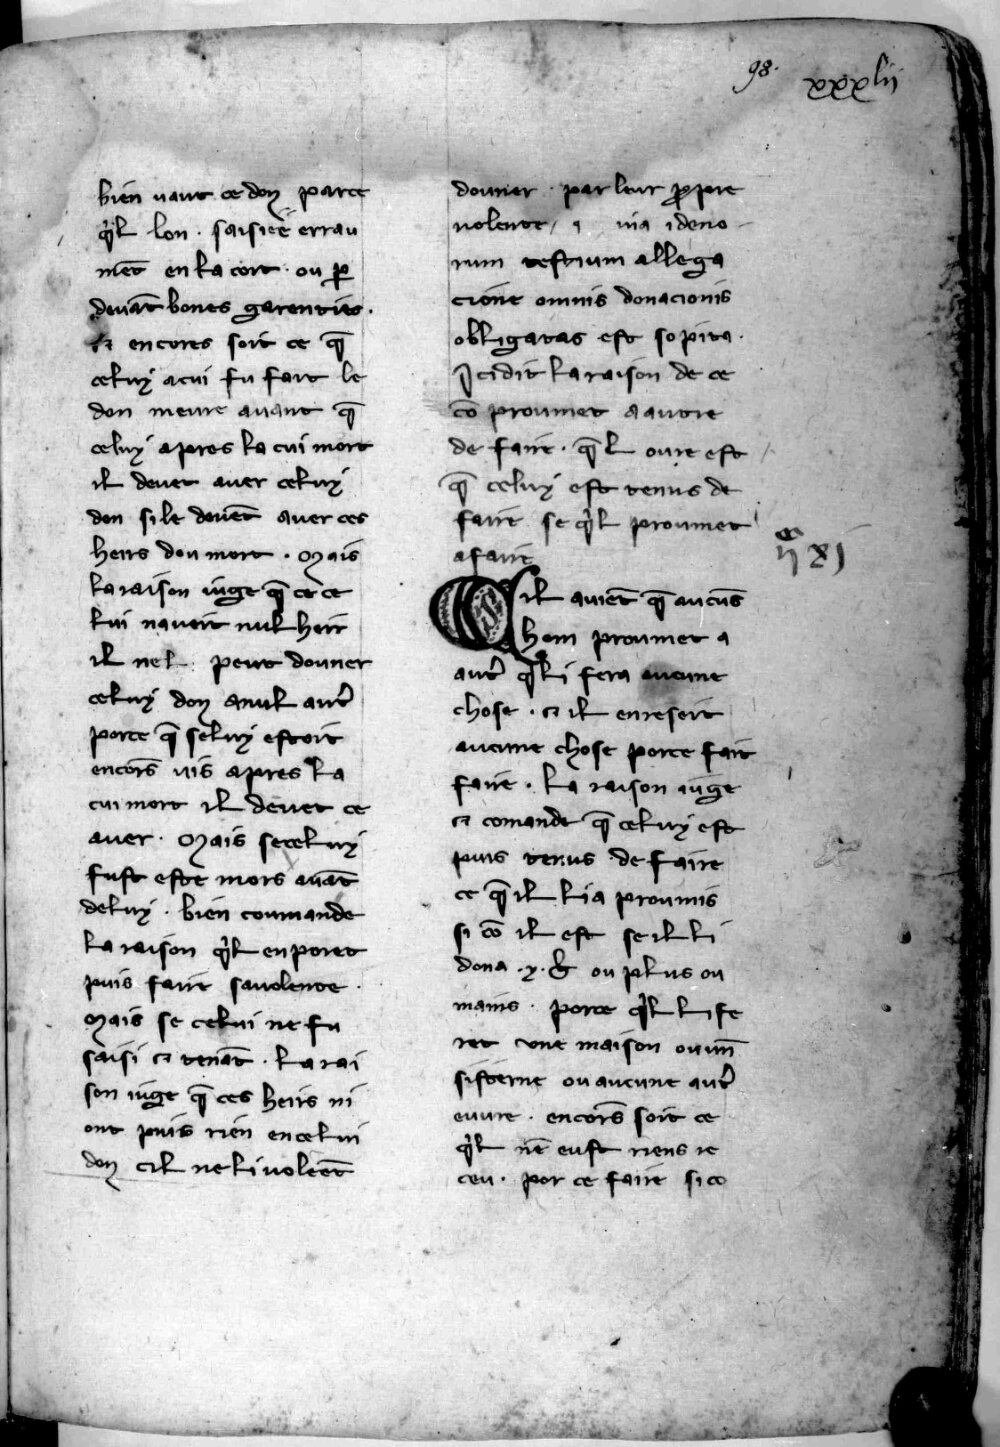 98.
xxxlii
bien vaut ce don parce
q'l lon · saisiee errau
mēt en la cort · ou ꝑ
devāt bones garenties ·
et encores soit ce q̄
celuy a cui fu fait le
don meure avant q̄
celuy apres la cui mort
il devet aver celuy
don si le devēt aver ces
heirs dou mort · Mais
la raison iuge q̄ ce ce
lui navoit nul heir
il nel peut douner
celuy don a nul aut'
porce q̄ seluy estoit
encors vis apres la
cui mort il devet ce
aver · Mais se celuy
fust este mors avāt
deluy · bien coumande
la raison q'l en poret
puis faire sa volente ·
Mais se celui ne fu
saisi et tenāt · la rai
son iuge q̄ ces heirs ni
ont puis rien en celui
don cil ne li voleēt
douner · par leur ꝓpre
volente, i via ideno
rum testium allega
cione omnis donacionis
obligatas est sopita ·
Icidit la raison de ce
cō proumet a autre
de faire · q̄ l ovre est
q̄ celuy est tenus de
faire se q'l proumet
a faire
ii xj
Sil avient q̄ aucūs
hom proumet a
aut' q'l li fera aucune
chose · et il en reseit
aucune chose porce fait
faire · la raison iuge
et comande q̄ celuy est
puis tenus de faire
ce q̄ il li a proumis
si cō il est se il li
dona · x · & ou plus ou
mains · porce q'l li fe
ret une maison ou un̄
sisterne ou aucune aut'
euvre · encors soit ce
q'l nē eust riens re
ceu · por ce faire si co